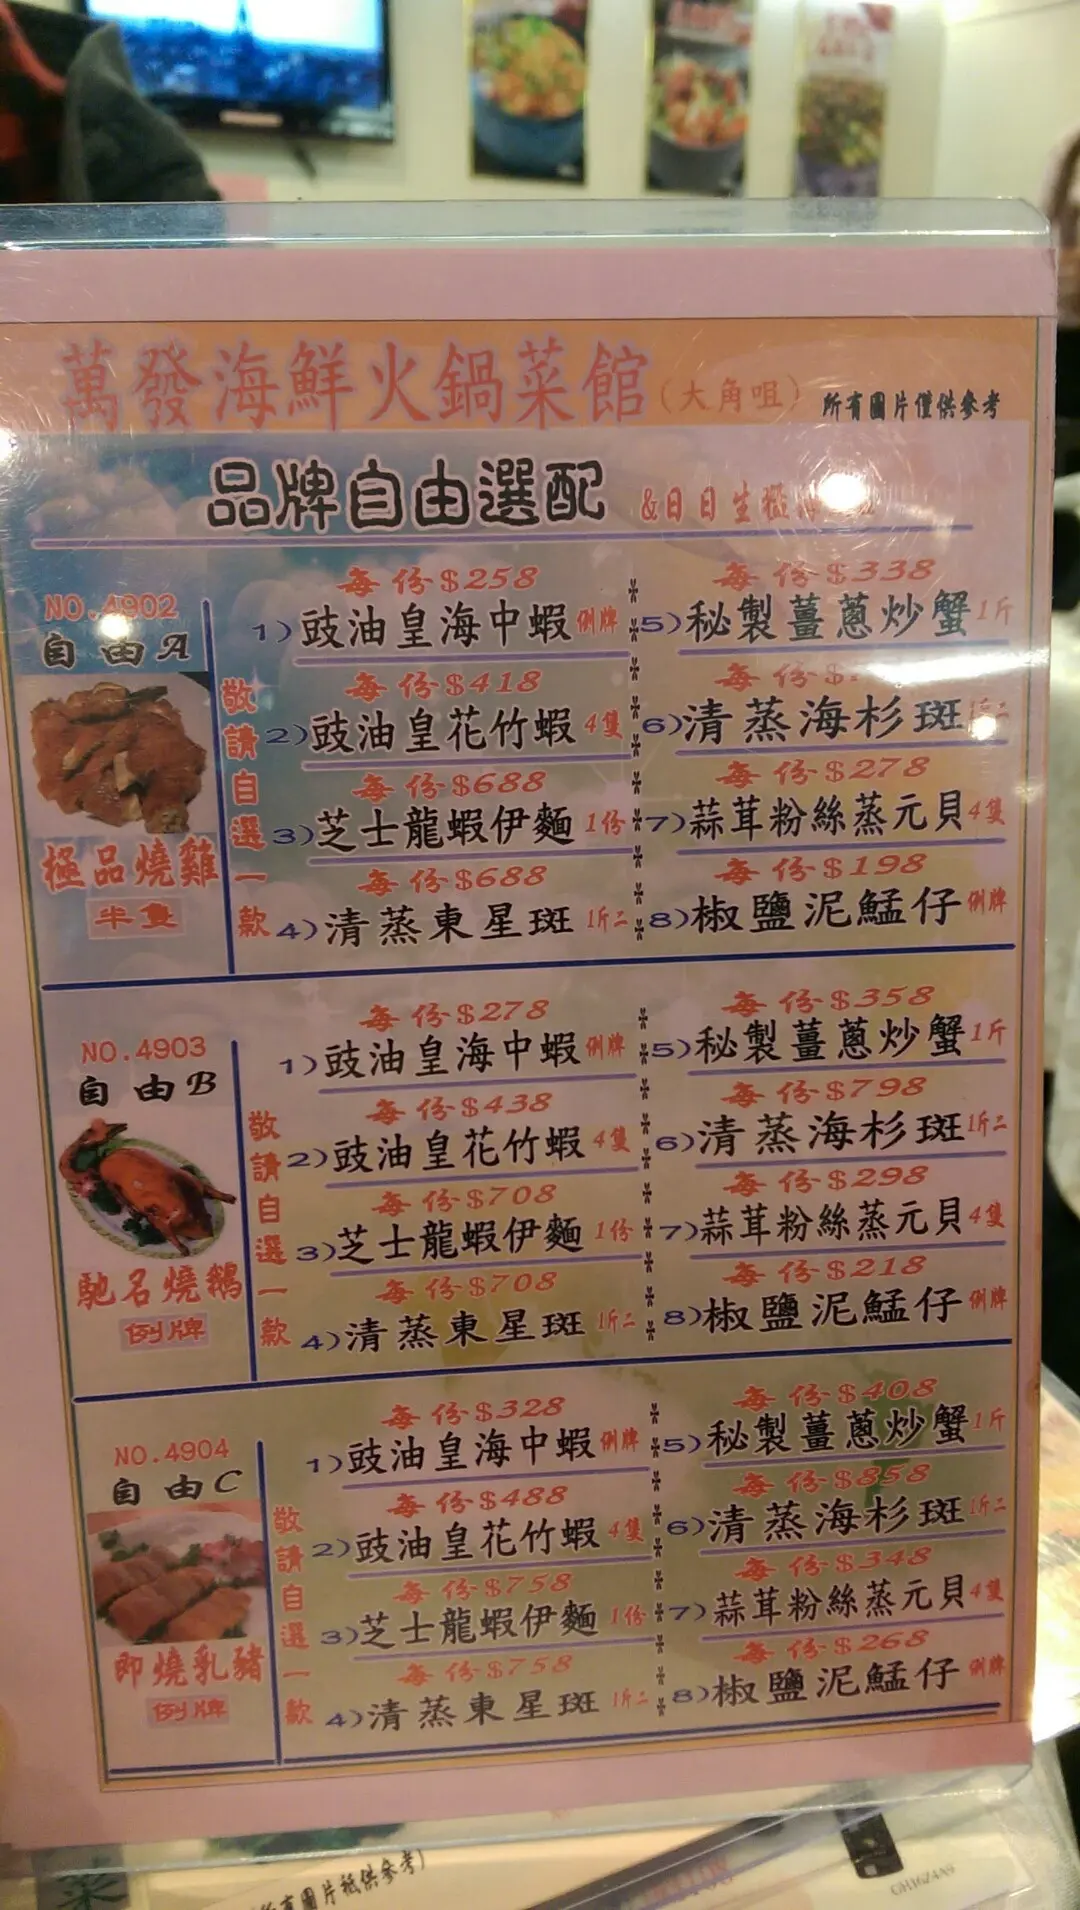 萬發海鮮火鍋菜館(大角咀) 所有圖片僅供參考
品牌自由選配 &日日生猛
NO.4902
自由A
極品燒雞
半隻
敬請自選一款
每份$258
1)豉油皇海中蝦 例牌
每份$418
2)豉油皇花竹蝦 4隻
每份$688
3)芝士龍蝦伊麵 1份
每份$688
4)清蒸東星斑 1斤二
每份$338
5)秘製薑蔥炒蟹 1斤
每份$
6)清蒸海杉斑
每份$278
7)蒜茸粉絲蒸元貝 4隻
每份$198
8)椒鹽泥鯭仔 例牌
NO.4903
自由B
馳名燒鵝
例牌
敬請自選一款
每份$278
1)豉油皇海中蝦 例牌
每份$438
2)豉油皇花竹蝦 4隻
每份$708
3)芝士龍蝦伊麵 1份
每份$708
4)清蒸東星斑 1斤二
每份$358
5)秘製薑蔥炒蟹 1斤
每份$798
6)清蒸海杉斑 1斤二
每份$298
7)蒜茸粉絲蒸元貝 4隻
每份$218
8)椒鹽泥鯭仔 例牌
NO.4904
自由C
即燒乳豬
例牌
敬請自選一款
每份$328
1)豉油皇海中蝦 例牌
每份$488
2)豉油皇花竹蝦 4隻
每份$758
3)芝士龍蝦伊麵 1份
每份$758
4)清蒸東星斑 1斤二
每份$408
5)秘製薑蔥炒蟹 1斤
每份$858
6)清蒸海杉斑 1斤二
每份$348
7)蒜茸粉絲蒸元貝 4隻
每份$268
8)椒鹽泥鯭仔 例牌
所有圖片祗供參考)